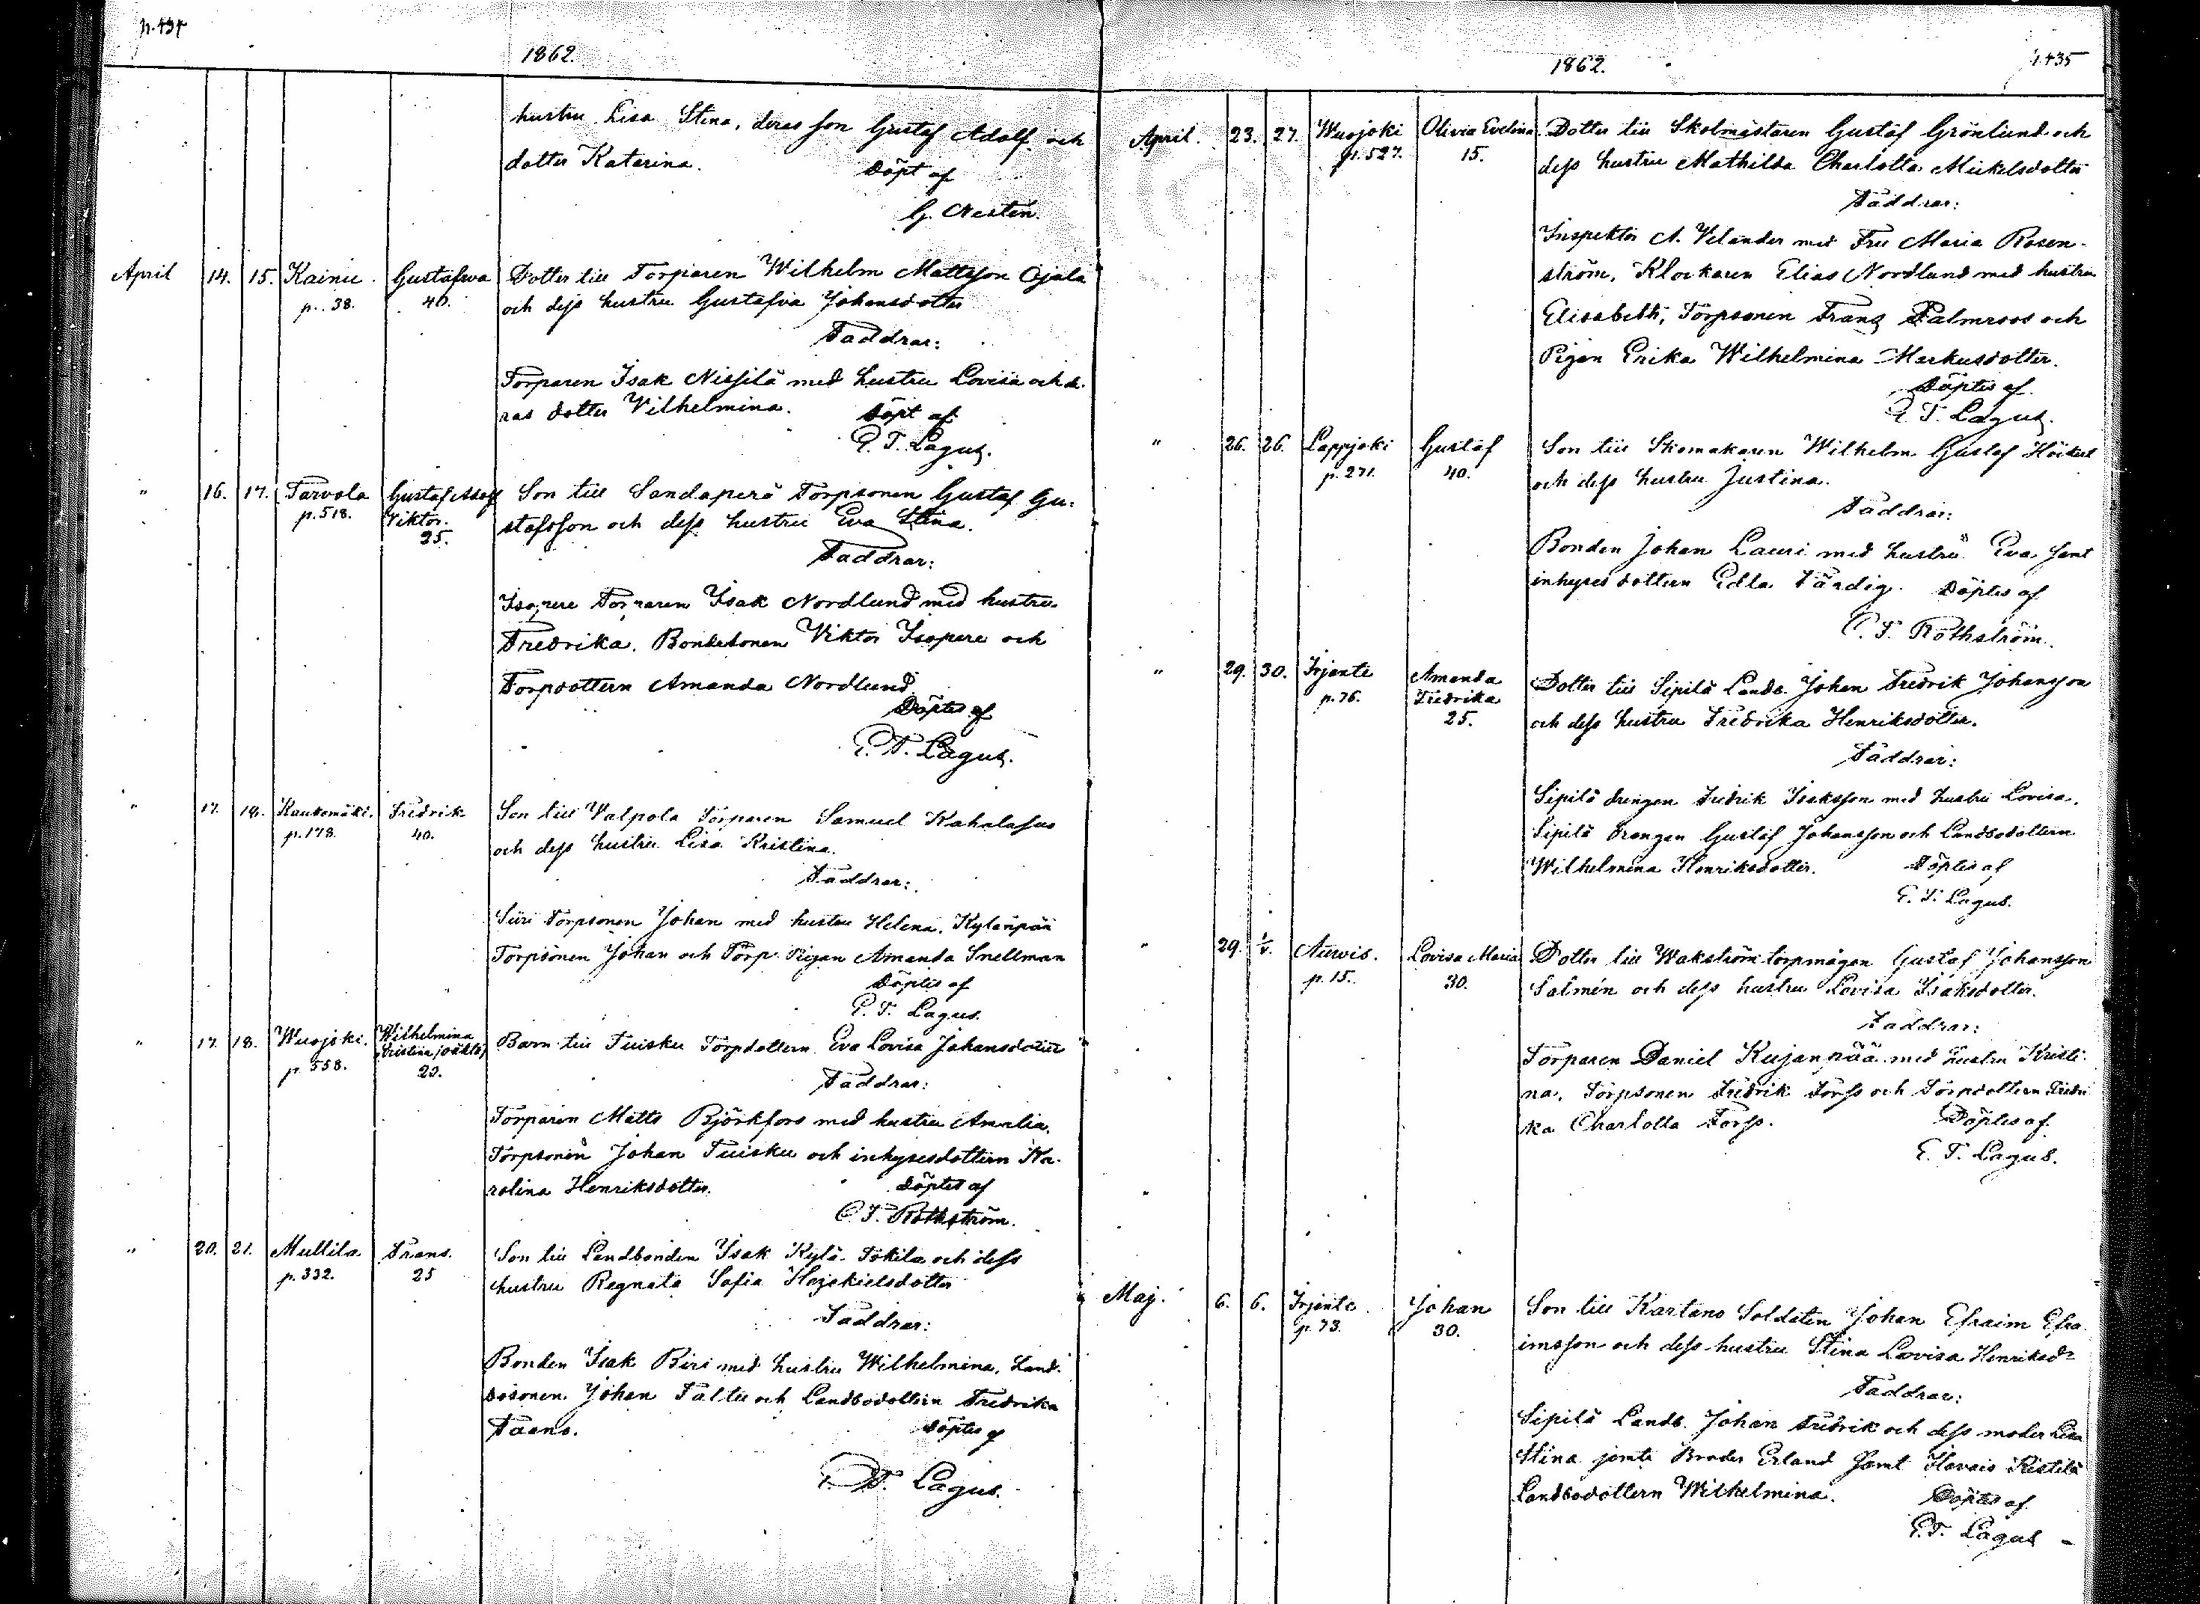 p. 434
1862.
hustru Lisa Stina, deras son Gustaf Adolf och
dotter Katarina. Döpt af
G. Nestén.
April 14. 15. Kainu Gustafwa Dotter till Torparen Wilhelm Mattsson Ojala
p. 38. 40. och dess hustru Gustafva Johansdotter
Faddrar:
Torparen Isak Nissilä med hustru Lovisa och de-
ras dotter Vilhelmina. Döpt af
E. T. Lagus.
" 16. 17. Tarvola Gustaf Adolf Son till Sandaperä Torpsonen Gustaf Gu-
p. 518. Viktor. stafsson och dess hustru Eva Stina.
25.
Faddrar:
Isopere Torparen Isak Nordlund med hustru
Fredrika. Bondesonen Viktor Isopere och
Torpdottern Amanda Nordlund
Döptes af
E. T. Lagus.
" 17. 18. Kaukomäki. Fredrik Son till Valpola Torparen Samuel Kahalasuo
p. 178. 40. och dess hustru Lisa Kristina.
Faddrar:
Siiri Torpsonen Johan med hustru Helena. Kylänpää
Torpsonen Johan och Torp. Pigan Amanda Snellman
Döptes af
E. T. Lagus.
" 17. 18. Wuojoki. Wilhelmina Barn till Tuisku Torpdottern Eva Lovisa Johansdotter
p. 558. Kristina (oäkta)
Faddrar:
Torparen Matts Björkfors med hustru Amalia.
Torpsonen Johan Tuisku och inhysesdottern Ka-
rolina Henriksdotter. Döptes af
C. F. Rothström.
" 20. 21. Mullila Frans. Son till Landbonden Isak Kylä-Tokila och dess
p. 332. 25 hustru Regnata Sofia Hezekielsdotter
Faddrar:
Bonden Isak Biri med hustru Wilhelmina, Land-
bosonen Johan Taltu och Landbodottern Fredrika
Döptes af
E. T. Lagus.
p. 435
1862.
April. 23. 27. Wuojoki Olivia Evelina Dotter till Skolmästaren Gustaf Grönlund och
p. 527. 15. dess hustru Mathilda Charlotta Mickelsdotter
Faddrar:
Inspektor A. Velander med Fru Maria Rosen-
ström, Klockaren Elias Nordlund med hustru
Elisabeth, Torpsonen Frans Palmroos och
Pigan Erika Wilhelmina Markusdotter.
Döptes af
E. T. Lagus.
" 26. 26. Lappjoki Gustaf Son till Skomakaren Wilhelm Gustaf
p. 271. 40. och dess hustru Justina.
Faddrar:
Bonden Johan Lauri med hustru Eva samt
inhyses dottern Edla Färdig. Döptes af
C. F. Rothström.
" 29. 30. Irjante Amanda Dotter till Sipilä Landb. Johan Fredrik Johansson
p. 76. Fredrika och dess hustru Fredrika Henriksdotter.
25.
Faddrar:
Sipilä drengen Fredrik Isaksson med hustru Lovisa.
Sipilä drengen Gustaf Johansson och Landbodottern
Wilhelmina Henriksdotter. Döptes af
E. T. Lagus.
" 29. 1/5. Auvis. Lovisa Maria Dotter till Wakström torpmågen Gustaf Johansson
p. 15. 30. Salmén och dess hustru Lovisa Isaksdotter.
Faddrar:
Torparen Daniel Kujanpää med hustru Kristi-
na. Torpsonen Fredrik Forss och Torpdottern Fredri-
ka Charlotta Forss. Döptes af
E. T. Lagus.
Maj. 6. 6. Irjante. Johan Son till Kartano Soldaten Johan Efraim Efra-
p. 73. 30. imsson och dess hustru Stina Lovisa Henriksdr
Faddrar:
Sipilä Landb. Johan Fredrik och dess moder Lisa
Stina jemte Broder Erland samt Ristilä
Landbodottern Wilhelmina. Döptes af
E. T. Lagus